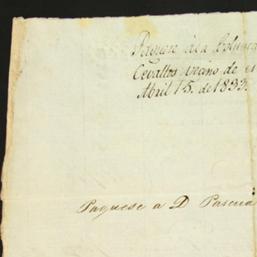 Paguese á la
Cevallos vecino de
Abril 15. de 1833.
Paguese a D Pascua